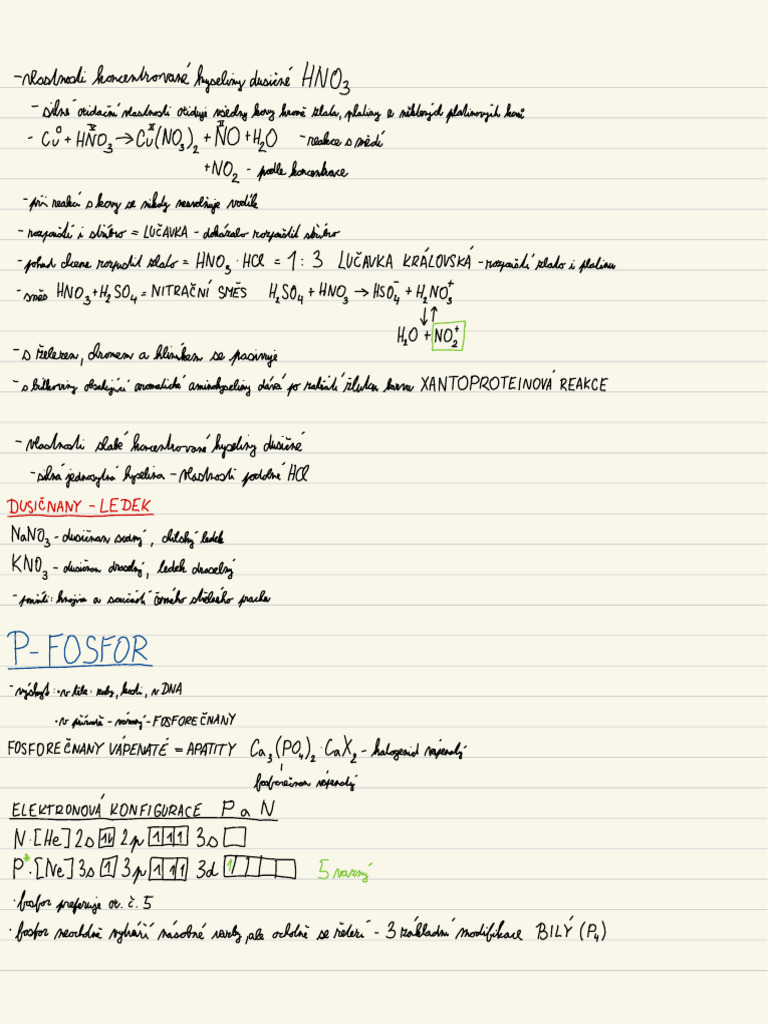 - vlastnosti koncentrované kyseliny dusičné HNO₃
- silné oxidační vlastnosti oxiduje všechny kovy kromě zlata, platiny a některých platinových kovů
- Cu⁰ + HNⱽO₃ → Cuᴵᴵ(NO₃)₂ + NᴵᴵO + H₂O - reakce s mědí
+ NO₂ - podle koncentrace
- při reakci s kovy se nikdy neuvolňuje vodík
- rozpouští i stříbro = LUČAVKA - dokázalo rozpouštět stříbro
- pokud chceme rozpustit zlato = HNO₃ · HCl = 1 : 3 LUČAVKA KRÁLOVSKÁ - rozpouští zlato i platinu
- směs HNO₃ + H₂SO₄ = NITRAČNÍ SMĚS H₂SO₄ + HNO₃ → HSO₄⁻ + H₂NO₃⁺
↓↑
H₂O + NO₂⁺
- s železem, chromem a hliníkem se pasivuje
- s bílkoviny obsahující aromatické aminokyseliny dává po zahřátí žlutou barvu XANTOPROTEINOVÁ REAKCE
- vlastnosti slabě koncentrované kyseliny dusičné
- silná jednosytná kyselina - vlastnosti podobné HCl
DUSIČNANY - LEDEK
NaNO₃ - dusičnan sodný, chilský ledek
KNO₃ - dusičnan draselný, ledek draselný
- použití: hnojiva a součástí černého střelného prachu
P - FOSFOR
- výskyt: · v těle - zuby, kosti, v DNA
· v přírodě - - FOSFOREČNANY
FOSFOREČNANY VÁPENATÉ = APATITY Ca₃(PO₄)₂ · CaX₂ - halogenid vápenatý
fosforečnan vápenatý
ELEKTRONOVÁ KONFIGURACE P a N
N · [He] 2s [1↓] 2p [1|1|1] 3s [ ]
P* · [Ne] 3s [1] 3p [1|1|1] 3d [1| | | | ] 5 vazný
· fosfor preferuje ox. č. 5
· fosfor neochotně vytváří násobné vazby, ale ochotně se řetězí - 3 základní modifikace BILÝ (P₄)